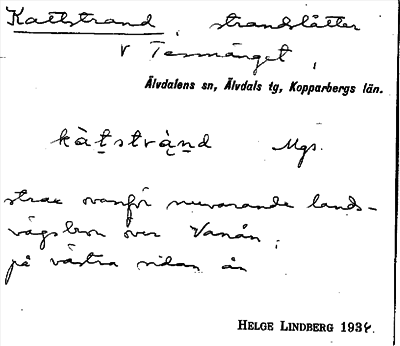 Kattstrand, strandslåtter
V Tennänget,
Älvdalens sn, Älvdals tg, Kopparbergs län.
kàt̠strà̠n̠d Mgs.
strax ovanför nuvarande lands-
vägsbron över Vanån,
på västra sidan ån
HELGE LINDBERG 1934.